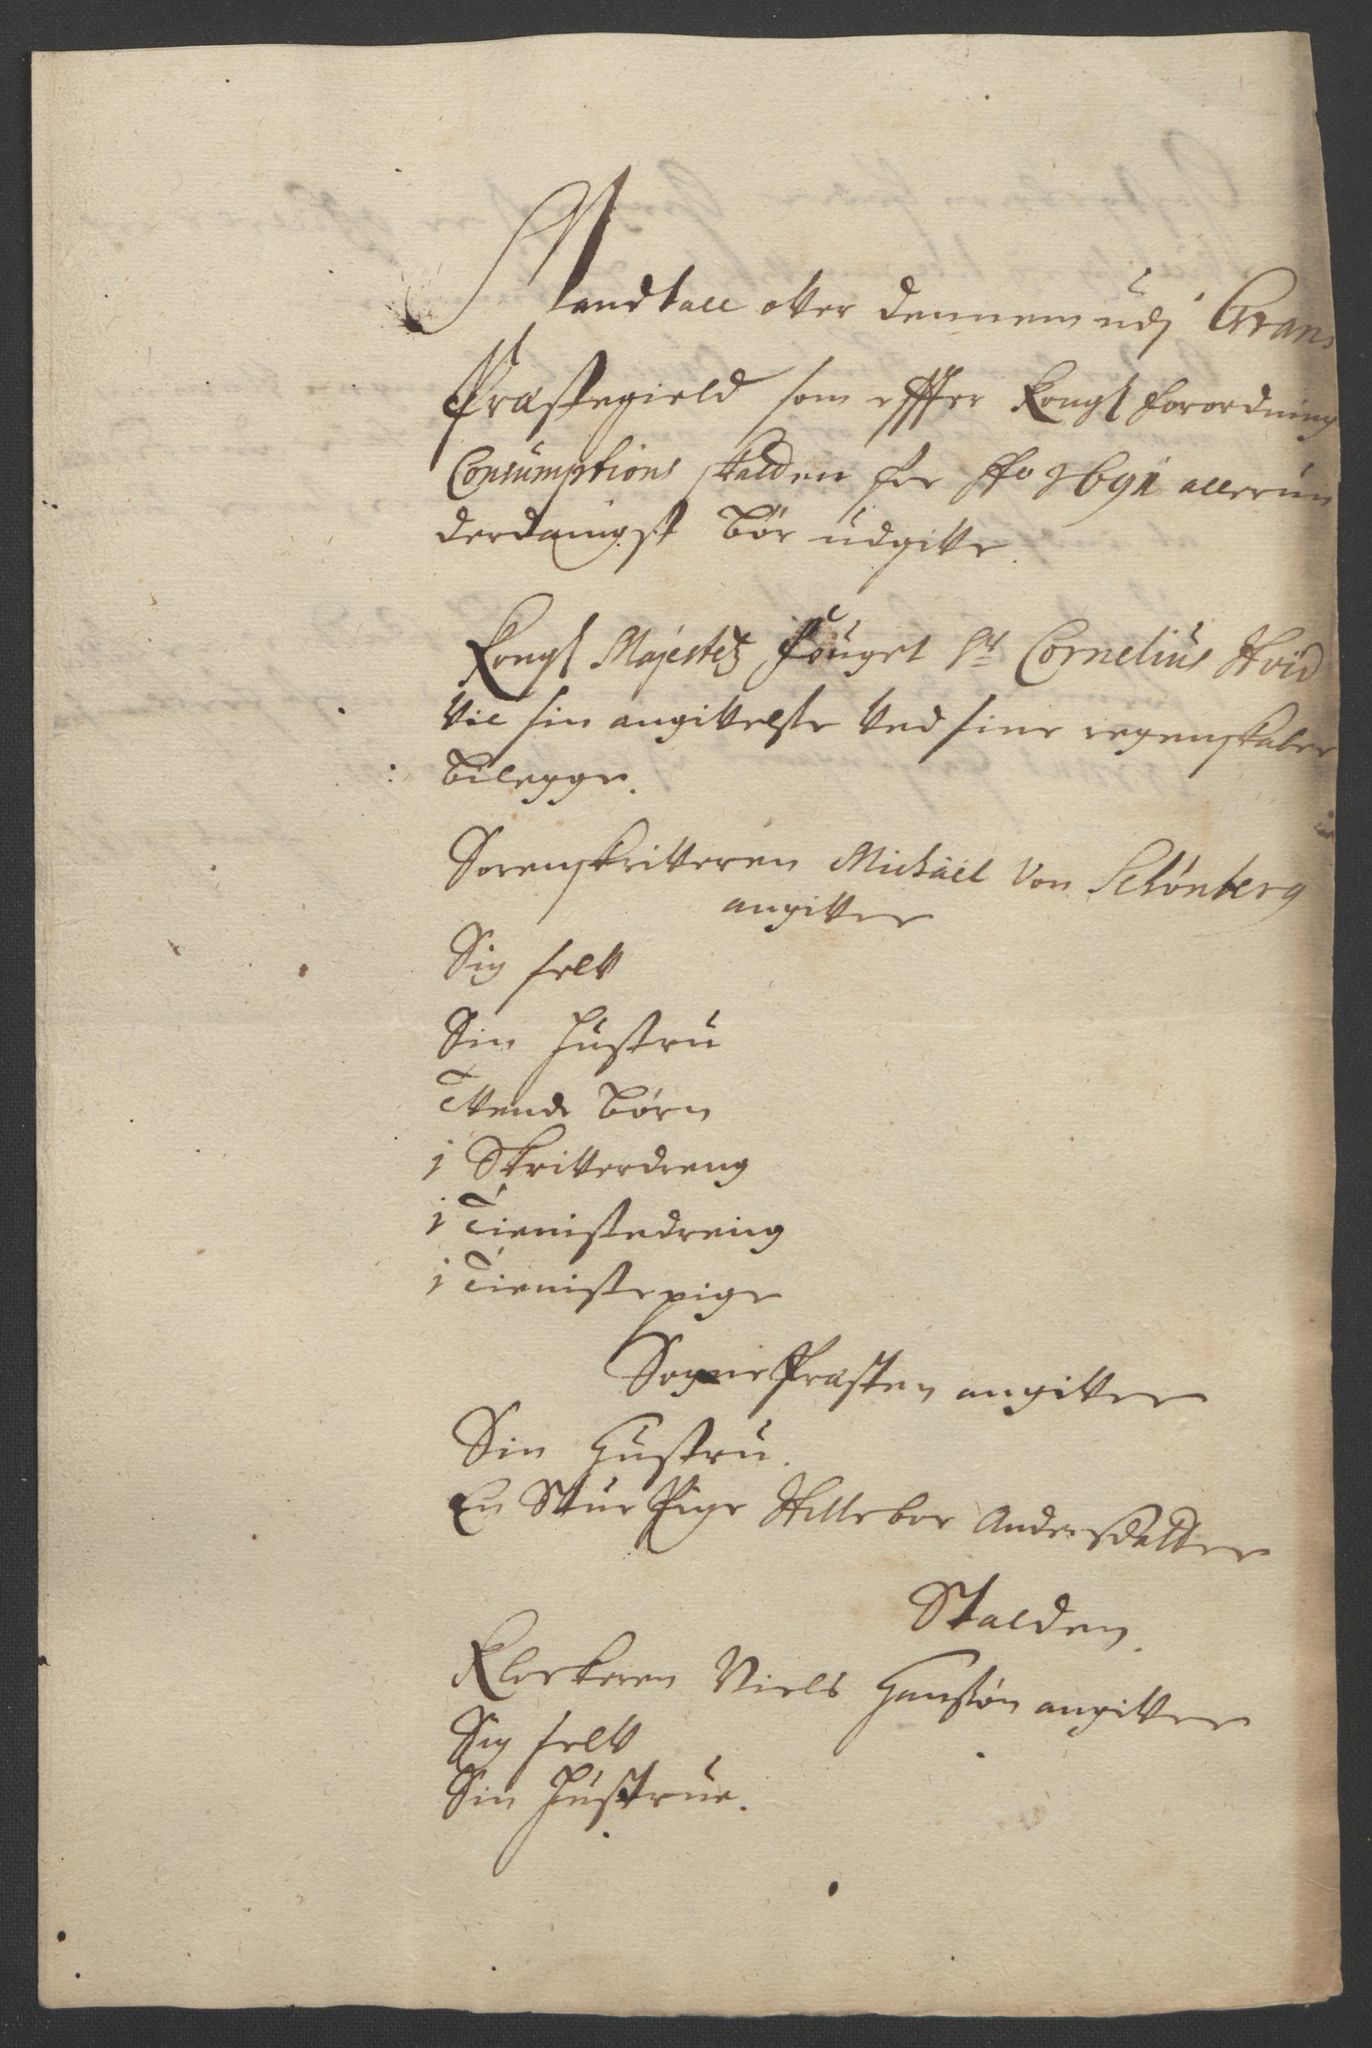 Mandtall ofver dennem udj Grans
Præstegield som effter Kongl forordning
Consumptions skatten for Ao 1691 allerun
derdanigst bør udgifve.
Kongl Majestetz Fouget Sr Cornelius Hvid
vil sin angifvelse ved sine regenskaber
bilegge.
Sorenskrifveren Michael von Schönberg
angifver
Sig self
Sin Hustru
Tvende börn
1 Skrifverdreng
1 Tienistedreng
1 Tienistepige
Sogne Præsten angifver
Sin Hustru.
En Stue Pige Hillebor Andersdatter
Skatten.
Klockeren Niels Hansøn angifver
Sig self
Sin Hustrue.